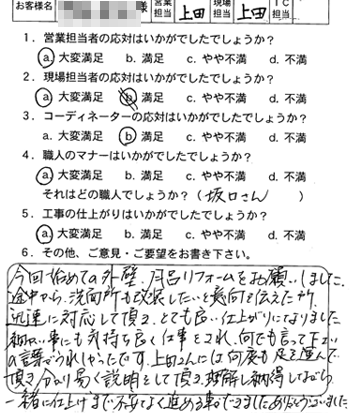 お客様名 様 営業担当 上田 現場担当 上田 TC担当
1．営業担当者の応対はいかがでしたでしょうか？
a. 大変満足 b. 満足 c. やや不満 d. 不満
2．現場担当者の応対はいかがでしたでしょうか？
a. 大変満足 b. 満足 c. やや不満 d. 不満
3．コーディネーターの応対はいかがでしたでしょうか？
a. 大変満足 b. 満足 c. やや不満 d. 不満
4．職人のマナーはいかがでしたでしょうか？
a. 大変満足 b. 満足 c. やや不満 d. 不満
それはどの職人でしょうか？（坂口さん）
5．工事の仕上がりはいかがでしたでしょうか？
a. 大変満足 b. 満足 c. やや不満 d. 不満
6．その他、ご意見・ご要望をお書き下さい。
今回始めての外壁、風呂リフォームをお願いしました。
途中から、洗面所も改装したいと意向を伝えたが
迅速に対応して頂き、とても良い仕上がりになりました
細かい事にも気持ち良く仕事をされ、何でも言って下さい
の言葉がうれしかったです。上田さんには何度も足を運んで
頂き分かり易く説明をして頂き、理解し納得しながら
一緒に仕上げまで進める事ができました。ありがとうございました。